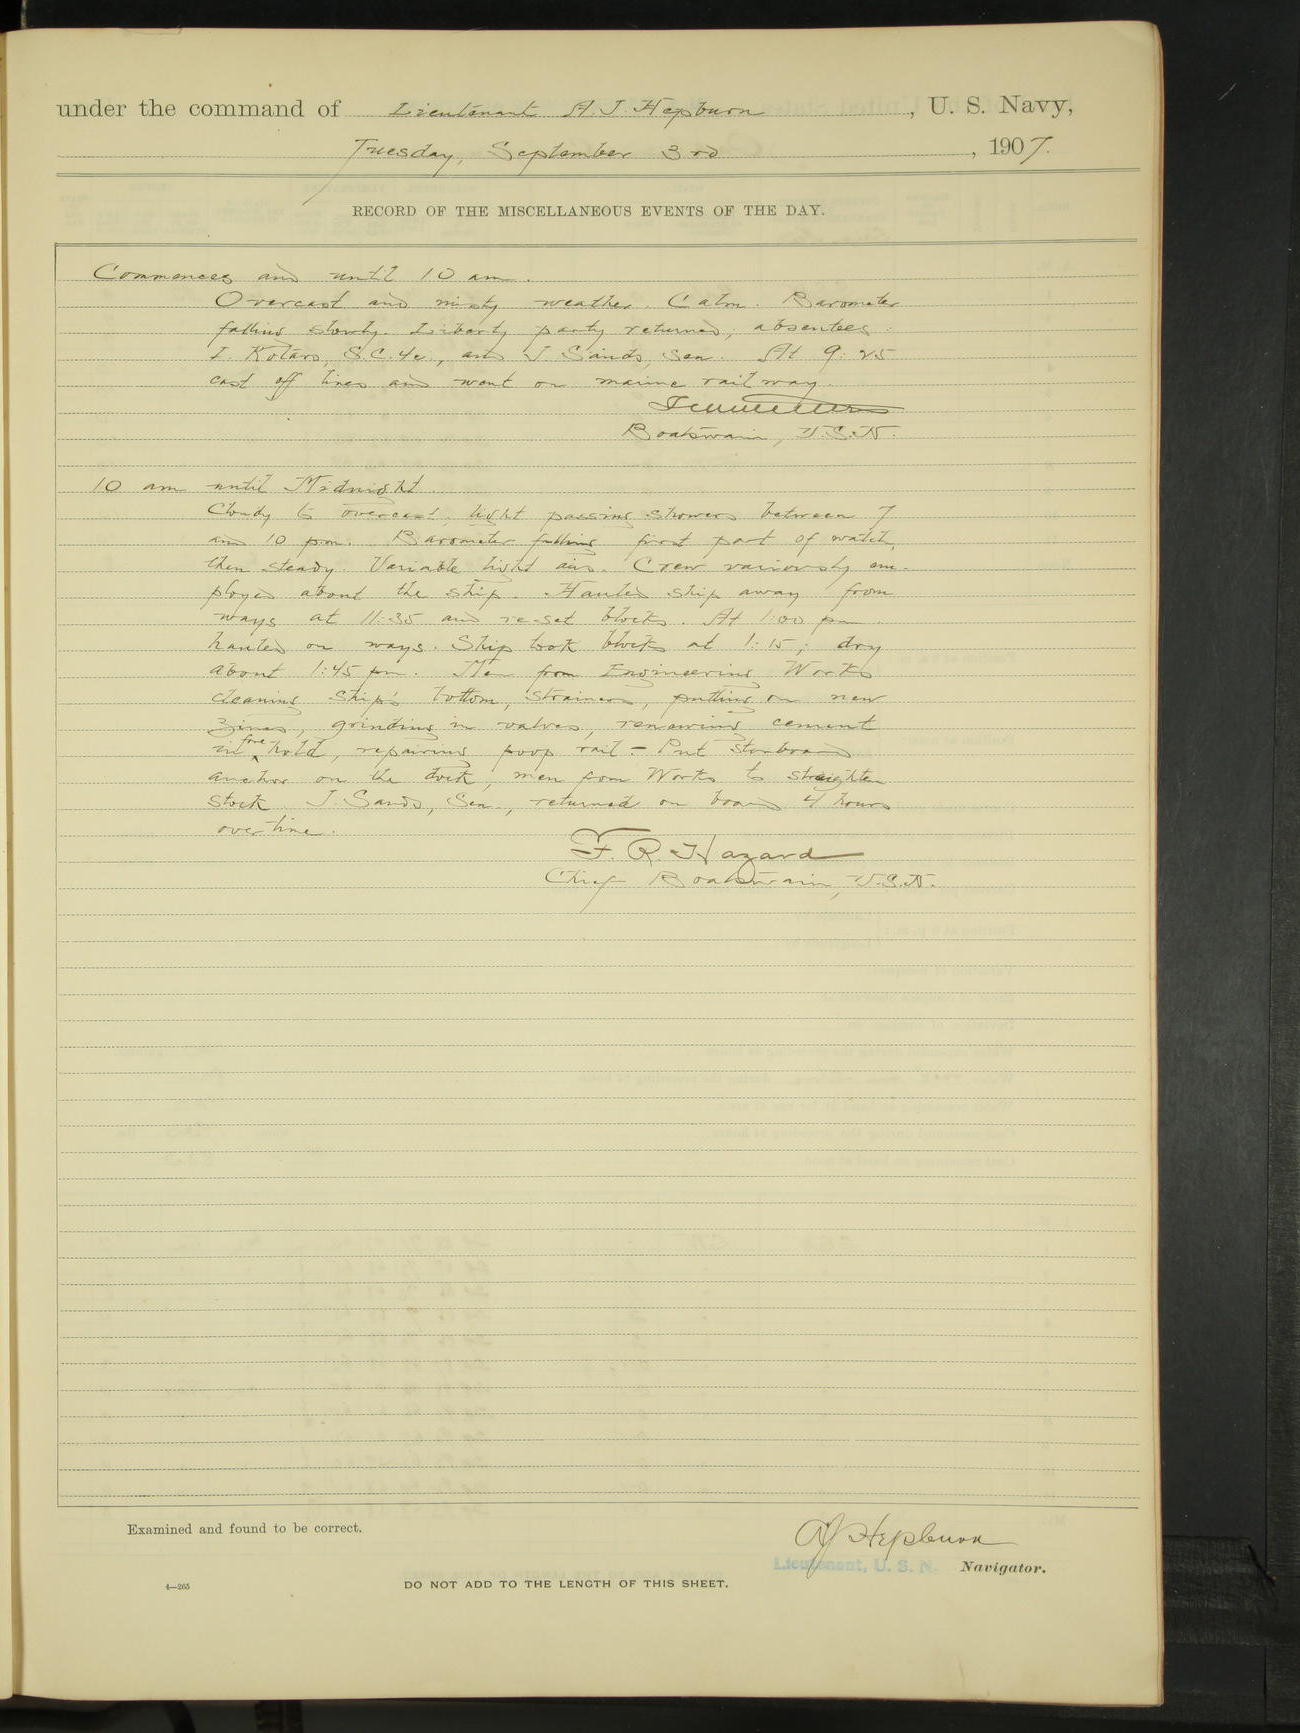 under the command of Lieutenant A. J. Hepburn, U. S. Navy,
Tuesday, September 3rd, 1907.
RECORD OF THE MISCELLANEOUS EVENTS OF THE DAY.
Commences and until 10 am.
Overcast and misty weather. Calm. Barometer
falling slowly. Liberty party returned; absentees:
I. Kotaro, S.C.4c., and J. Sands, Sea. At 9:25
cast off lines and went on marine railway.
Boatswain, U.S.N.
10 am until Midnight
Cloudy to overcast, light passing showers between 7
and 10 p.m. Barometer falling first part of watch,
then steady. Variable light airs. Crew variously em-
ployed about the ship. Hauled ship away from
ways at 11:35 and re-set blocks. At 1:00 pm
hauled on ways. Ship took blocks at 1:15; dry
about 1:45 pm. Men from Engineering Works
cleaning ship's bottom, strainers, putting on new
zincs, grinding in valves, renewing cement
in fore hold, repairing poop rail - Put starboard
anchor on the dock, men from Works to straighten
stock. J. Sands, Sea., returned on board 4 hours
overtime.
F. R. Hazard
Chief Boatswain, U.S.N.
Examined and found to be correct.
AJ Hepburn
Lieutenant, U. S. N. Navigator.
4—265
DO NOT ADD TO THE LENGTH OF THIS SHEET.